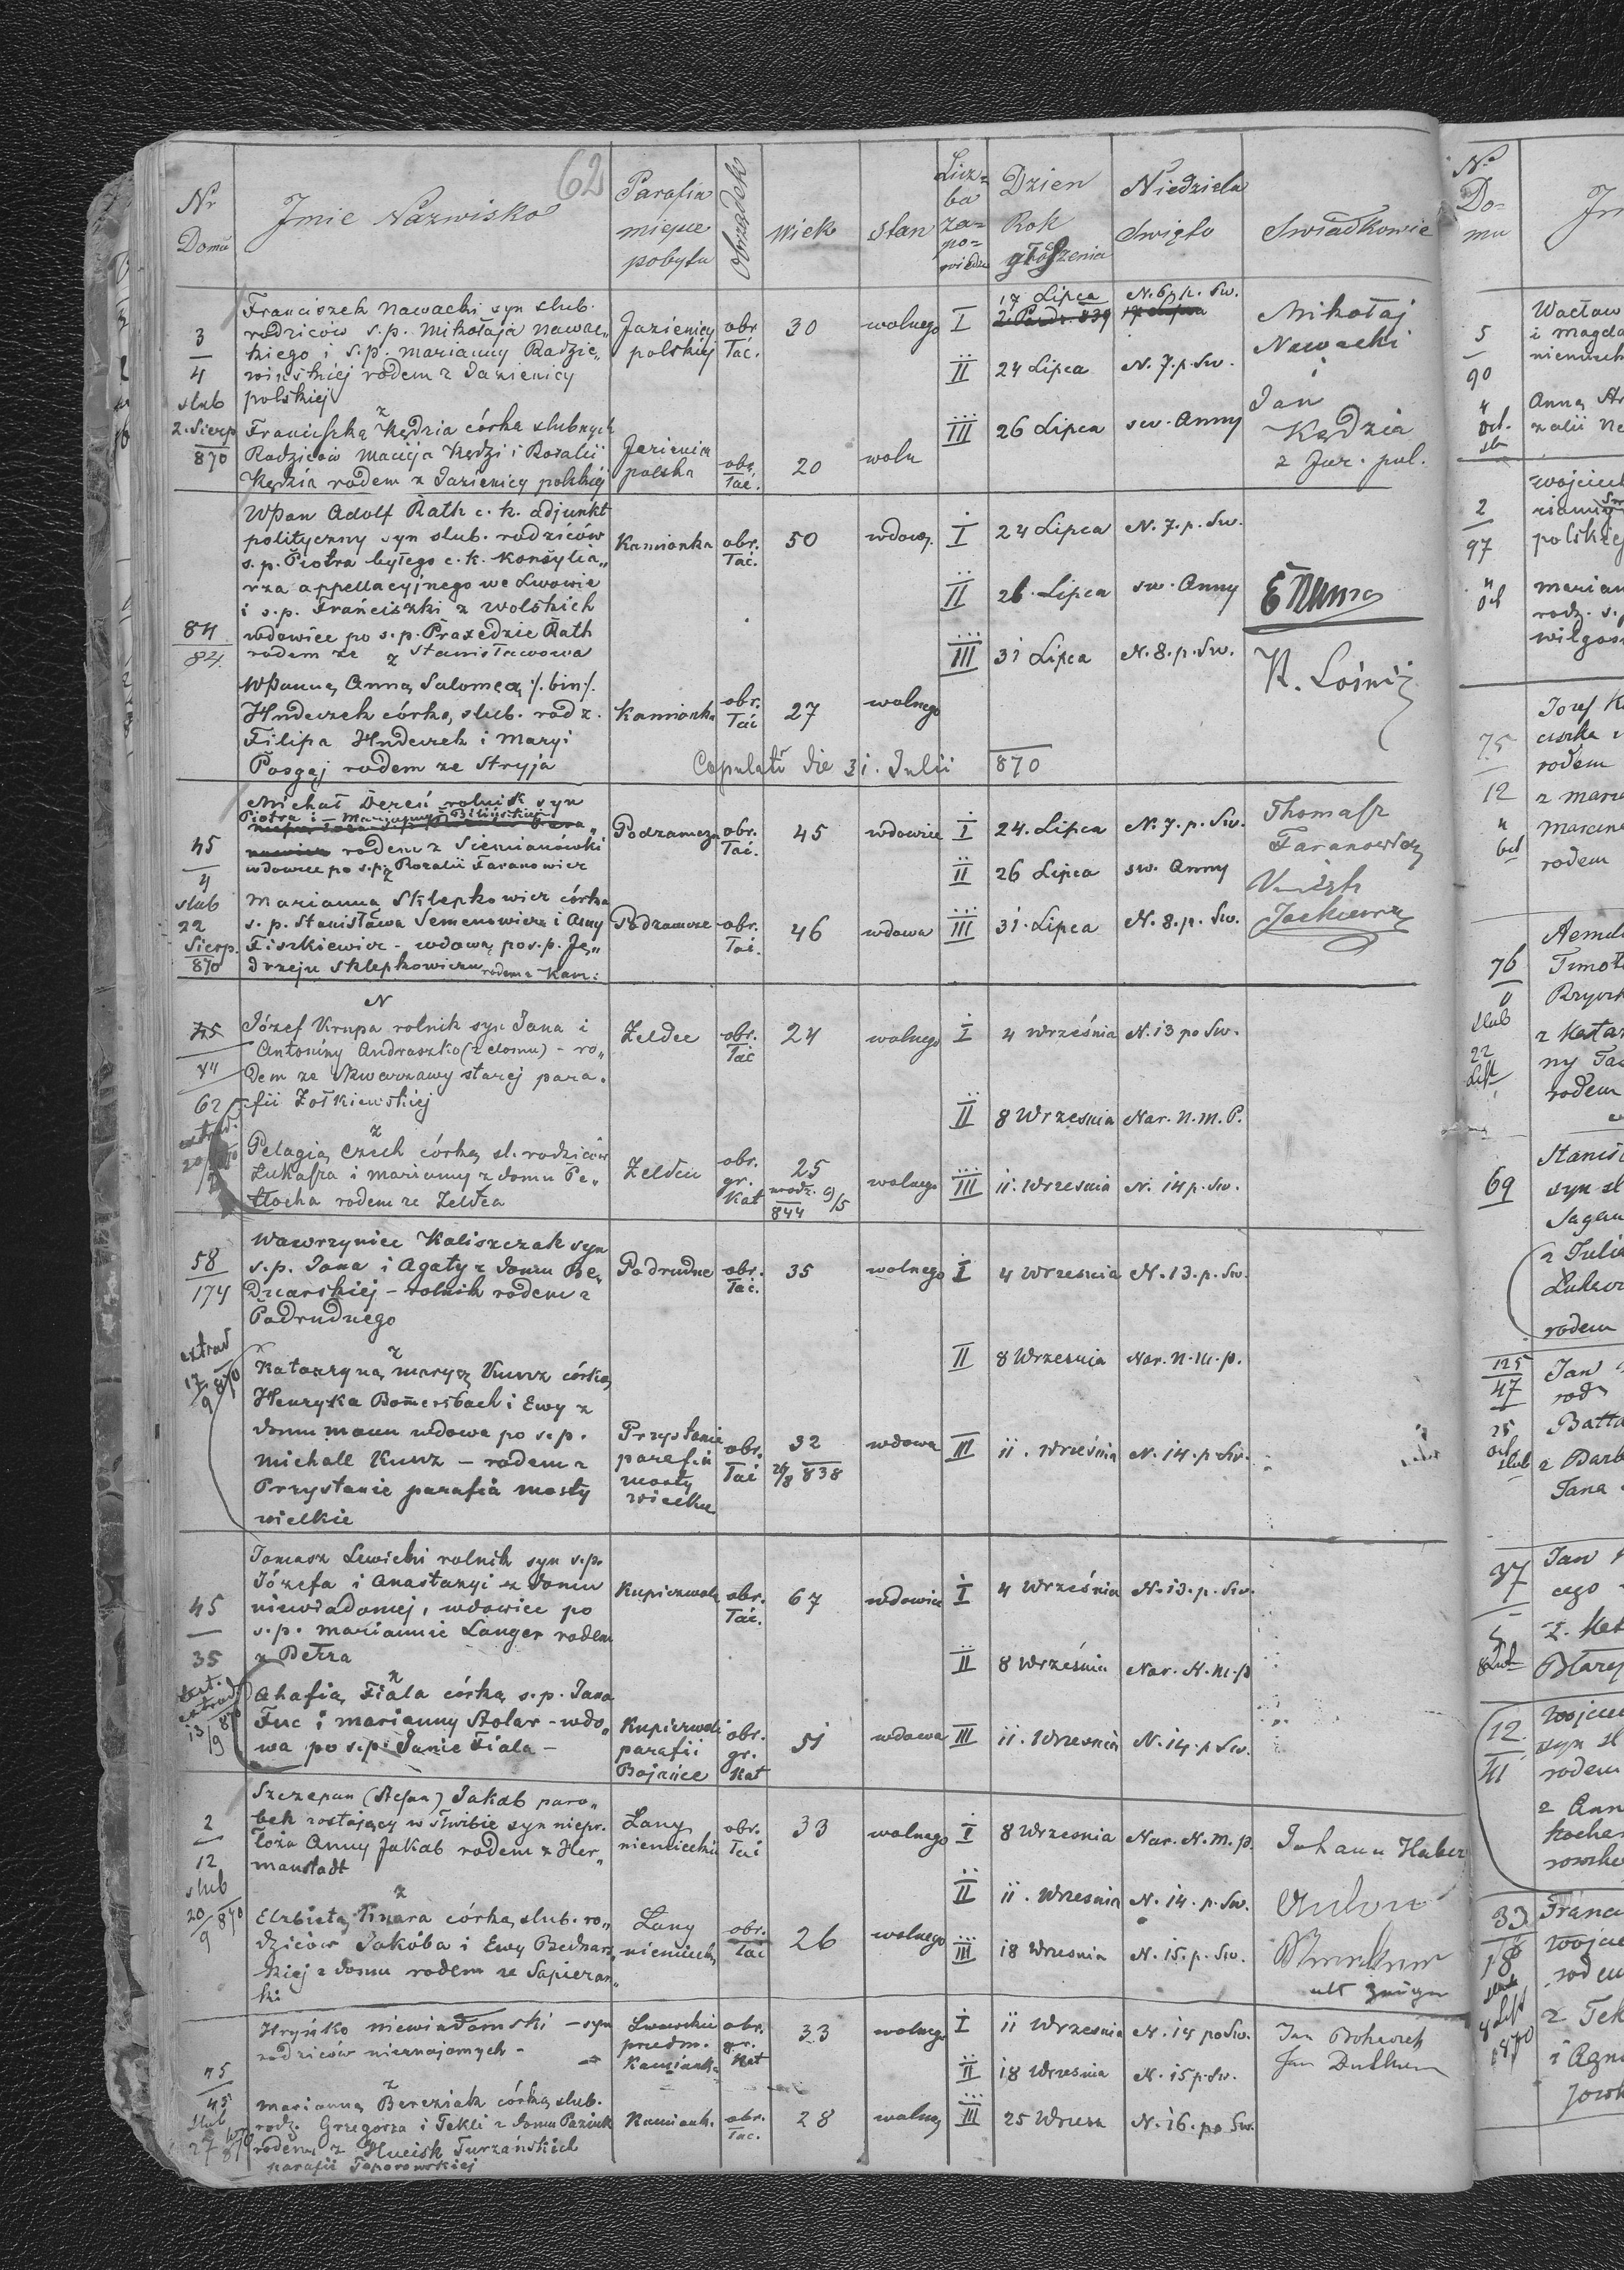 62
Nr Domu
Imie Nazwisko
Parafia miejsce pobytu
Obrządek
Wiek
Stan
Licz=ba za=po=wiedzi
Dzien Rok głoszenia
Niedziela Święto
Swiadkowie
3
4
slub
2. Sierp
870
Franciszek Nawacki syn slub.
rodziców s.p. Mikołaja Nawac„
kiego i s.p. Marianny Radzie„
wińskiej rodem z Jazienicy
polskiej
Jazienicy polskiej
obr. łać.
30
wolnego
I
17 Lipca
N. 6 p. Sw.
II
24 Lipca
N. 7. p. Sw.
III
26 Lipca
sw. Anny
Mikołaj
Nawacki
i
Jan
Kędzia
z Jaz. pol.
z
Franciszką Kędzia córka slubnych
Rodziców Macieja Kędzi i Rozalii
Kędzia rodem z Jazienicy polskiej
Jazienica polska
obr. łać.
20
woln
84
84.
WPan Adolf Rath c. k. adjunkt
polityczny syn slub. rodziców
s.p. Piotra byłego c. k. konsylia„
rza appellacyjnego we Lwowie
i s.p. Franciszki z Wolskich
wdowiec po s.p. Praxedzie Rath
rodem ze Stanisławowa
z
Kamionka
obr. łać.
50
wdow.
I
24 Lipca
N. 7. p. Sw.
II
26. Lipca
sw. Anny
III
31 Lipca
N. 8. p. Sw.
WPanna Anna Salomea ./. bin ./.
Hndeczek córką slub. rodz.
Filipa Hndeczek i Maryi
Posgaj rodem ze Stryja
Kamionka
obr. łać
27
wolnego
Copulati die 31. Julii 870
45
4
slub
22
Sierp.
870
Michał Dereń rolnik syn
Piotra i Marianny Bilińskiej
rodem z Siemianówki
wdowiec po s.p. Rozalii Taranowicz
z
Podzamcze
obr. łać.
45
wdowiec
I
24. Lipca
N. 7. p. Sw.
II
26 Lipca
sw. Anny
III
31. Lipca
N. 8. p. Sw.
Thomasz
Taranowicz
Marianna Sklepkowicz córka
s.p. Stanisława Semenowicza i Anny
Fiszkiewicz - wdowa po s.p. Ję„
drzeju Sklepkowiczu rodem z Kam:
Podzamcze
obr. łać.
46
wdowa
N
75
84
62
Józef Krupa rolnik syn Jana i
Antoniny Andraszko (z domu) - ro„
dem ze Skwarzawy starej para.
fii Żołkiewskiej
z
Żeldec
obr. łać
24
wolnego
I
4 Września
N. 13 po Sw.
II
8 Wrzesnia
Nar. N. M. P.
III
11. Wrzesnia
N. 14 p. Sw.
Pelagią Czech córką sl. rodziców
Łukasza i Marianny z domu Pe„
tłocha rodem ze Żeldca
Żeldcu
obr. gr. Kat
25
urodz. 9/5
844
wolnego
58
174
extrad
17/9 870
Wawrzyniec Kaliszczak syn
s.p. Jana i Agaty z domu Be„
dnarskiej - rolnik rodem z
Podrudnego
z
Podrudne
obr. łać.
35
wolnego
I
4 Wrzesnia
N. 13. p. Sw.
II
8 Wrzesnia
Nar. N. M. P.
III
11. Wrzesnia
N. 14. p. Sw.
Katarzyną Marya Kunz córką
Henryka Bomersbach i Ewy z
domu Maun wdowa po s.p.
Michale Kunz - rodem z
Przystanie parafia Mosty
wielkie
Przystanie parafia Mosty wielkie
obr. łać
32
26/8 838
wdowa
45
35
extrad
13/9 870
Tomasz Lewicki rolnik syn s.p.
Józefa i Anastazyi z domu
niewiadomej, wdowiec po
s.p. Mariannie Langer rodem
z Bełza
z
Kupiczwola
obr. łać.
67
wdowiec
I
4 Września
N. 13. p. Sw.
II
8 Września
Nar. N. M. P
III
11. Wrzesnia
N. 14. p Sw.
Ahafią Fiala córką s.p. Jana
Fuc i Marianny Stolar - wdo„
wa po s.p. Janie Fiala -
Kupiczwoli parafii Bojańce
obr. gr. Kat
51
wdowa
2
12
slub
20/9 870
Szczepan (Stefan) Jakab paro„
bek zostający w służbie syn niepr.
łoża Anny Jakab rodem z Her„
manstadt
z
Łany niemieckie
obr. łać
33
wolnego
I
8 Wrzesnia
Nar. N. M. P.
II
11. Wrzesnia
N. 14. p. Sw.
III
18 Wrzesnia
N. 15. p. Sw.
Johann Huber
Anton
Elżbietą Tnara córką slub. ro„
dziców Jakóba i Ewy Bednars„
kiej z domu rodem ze Sapieżan„
ki
Łany niemieck.
obr. łać
26
wolnego
75
45
slub
27
Hryńko niewiadomski - syn
rodziców nieznajomych -
z
Lwowskie przedm. Kamionka
obr. gr. Kat
33
wolnego
I
11 Wrzesnia
N. 14 po Sw.
II
18 Wrzesnia
N. 15 p. Sw.
III
25 Wrzes
N. 16. po Sw.
Marianną Bereziak córką slub.
rodz. Grzegorza i Tekli z domu Paziuk
rodem z Hucisk Turzańskich
parafii Toporowskiej
Kamionk.
obr. łac.
28
wolną
Nr Do=mu
5
90
Wacław
i Magda
Anną
2
97
Wojciech
polskiej
Marian
rodz. s.p
75
12
Józef
rodem
z Mari
rodem
76
slub
22
rodem
69
Stanis
syn sl
z Julia
rodem
125
47
25
slub
Jan
rodz
z Barb
Jana
37
Jan
cego
12
41
Wojciech
syn sl
rodem
z Ann
33
18
Franc
Wojcie
rodem
z Tek
i Agn